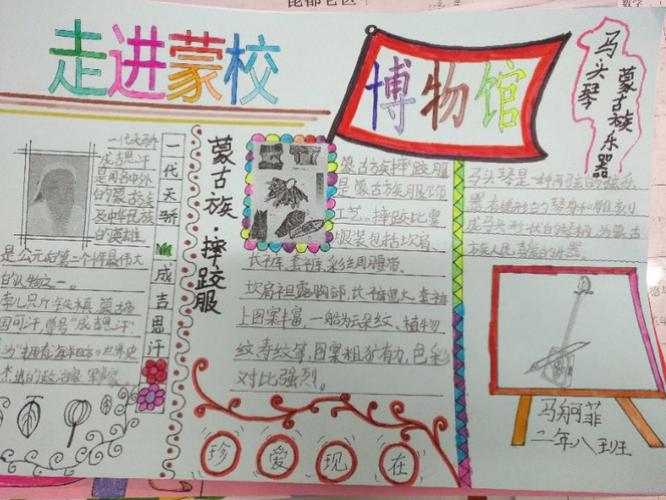 走进蒙校
博物馆
马头琴
蒙古族乐器
一代天骄
成吉思汗
是闻名中外
的蒙古族
及中华民族
的英雄
是公元后第二个千年最伟大
的人物之一。
孛儿只斤·铁木真 蒙古帝
国可汗，尊号"成吉思汗"
杰出的政治家 军事家
一代天骄 成吉思汗
蒙古族·摔跤服
蒙古族摔跤服
是蒙古族服饰
工艺。摔跤比赛
服装包括坎肩
长裤 套裤 彩绸腰带。
坎肩袒露胸部，长裤肥大。套裤
上图案丰富，一般为云朵纹，植物
纹寿纹等，图案粗犷有力，色彩
对比强烈。
马头琴是一种两弦的弦乐
器 有梯形的琴身和雕刻
成马头形状的琴柄，为蒙古
族人民喜爱的乐器。
马舸菲
二年八班
珍爱现在